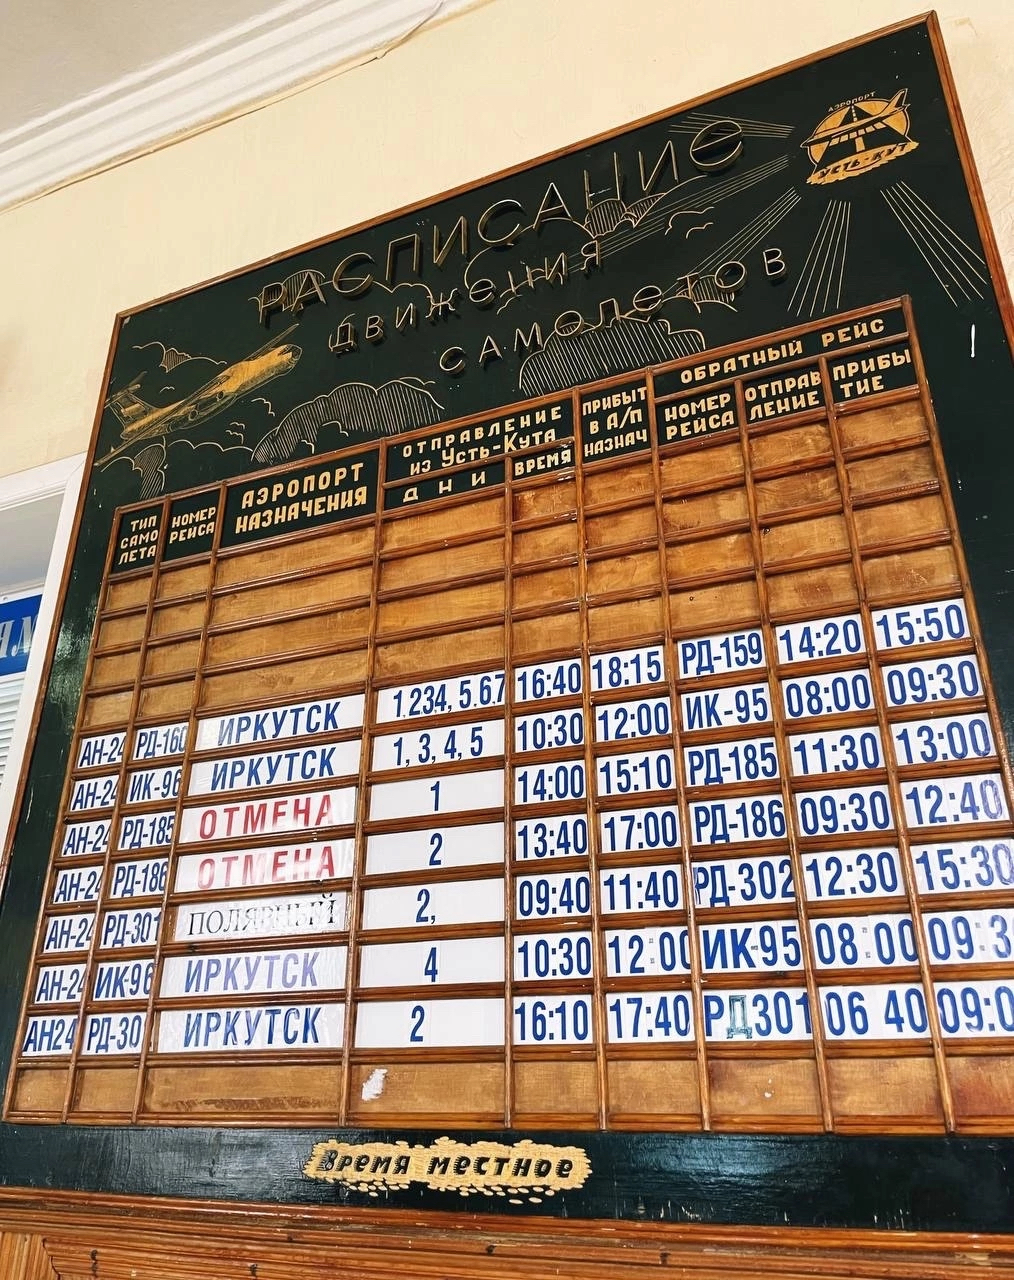 АЭРОПОРТ
УСТЬ-КУТ
РАСПИСАНИЕ
ДВИЖЕНИЯ
САМОЛЕТОВ
ТИП САМО ЛЕТА НОМЕР РЕЙСА АЭРОПОРТ НАЗНАЧЕНИЯ ОТПРАВЛЕНИЕ ИЗ УСТЬ-КУТА ДНИ ВРЕМЯ ПРИБЫТ В А/П НАЗНАЧ ОБРАТНЫЙ РЕЙС НОМЕР РЕЙСА ОТПРАВ ЛЕНИЕ ПРИБЫ ТИЕ
АН-24 РД-160 ИРКУТСК 1,234, 5.6.7 16:40 18:15 РД-159 14:20 15:50
АН-24 ИК-96 ИРКУТСК 1, 3, 4, 5 10:30 12:00 ИК-95 08:00 09:30
АН-24 РД-185 ОТМЕНА 1 14:00 15:10 РД-185 11:30 13:00
АН-24 РД-186 ОТМЕНА 2 13:40 17:00 РД-186 09:30 12:40
АН-24 РД-301 ПОЛЯРНЫЙ 2, 09:40 11:40 РД-302 12:30 15:30
АН-24 ИК-96 ИРКУТСК 4 10:30 12:00 ИК-95 08:00 09:3
АН24 РД-30 ИРКУТСК 2 16:10 17:40 РД301 06 40 09:0
Время местное